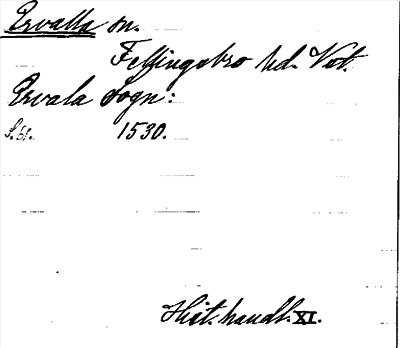 Ervalla sn.
Fellingsbro hd. Vstm.
Ervala Sogn:
S. 51. 1530.
Hist. handl. XI.